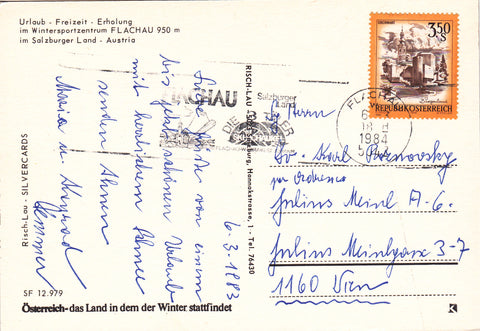 Urlaub - Freizeit - Erholung
im Wintersportzentrum FLACHAU 950 m
im Salzburger Land - Austria
Liebe Grüße von einem
bis jetzt schönen Urlaub
mit herrlichem Schnee
senden Ihnen
Maria u. Konrad
6.3.1983
Risch-Lau - SILVERCARDS
SF 12.979
Österreich - das Land in dem der Winter stattfindet
RISCH-LAU
Salzburg, Hannakstrasse
Tel. 76430
FLACHAU
Salzburger
Land
DIE
FLACHAU
1984
3.50
S
REPUBLIK ÖSTERREICH
Herrn
Karl
Julius Meinl A.G.
Julius Meinlgasse 3-7
1160 Wien
K